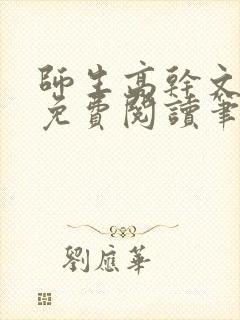 師生高幹文
免費閱讀筆
劉應華